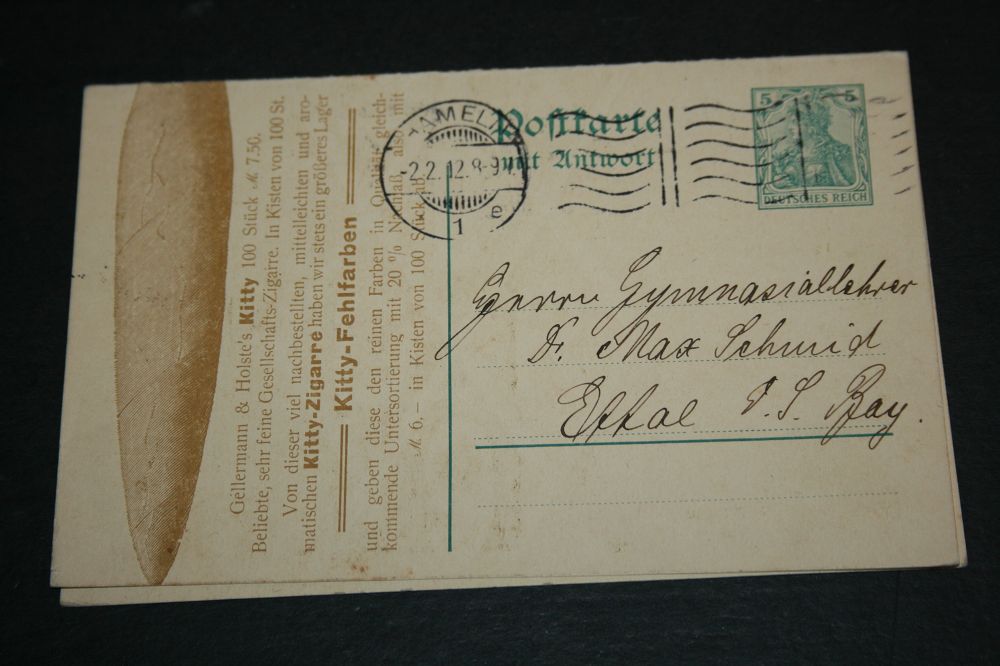 Gellermann & Holste's Kitty 100 Stück M. 7.50.
Beliebte, sehr feine Gesellschafts-Zigarre. In Kisten von 100 St.
Von dieser viel nachbestellten, mittelleichten und aro-
matischen Kitty-Zigarre haben wir stets ein größeres Lager
Kitty-Fehlfarben
und geben diese den reinen Farben in Qualität gleich-
kommende Untersortierung mit 20 % Nachlaß, also mit
M. 6,– in Kisten von 100 Stück ab.
HAMELN
2.2.12.8-9
1 e
Postkarte
mit Antwort
5 5
DEUTSCHES REICH
Herrn Gymnasiallehrer
Dr. Max Schmid
Bay.